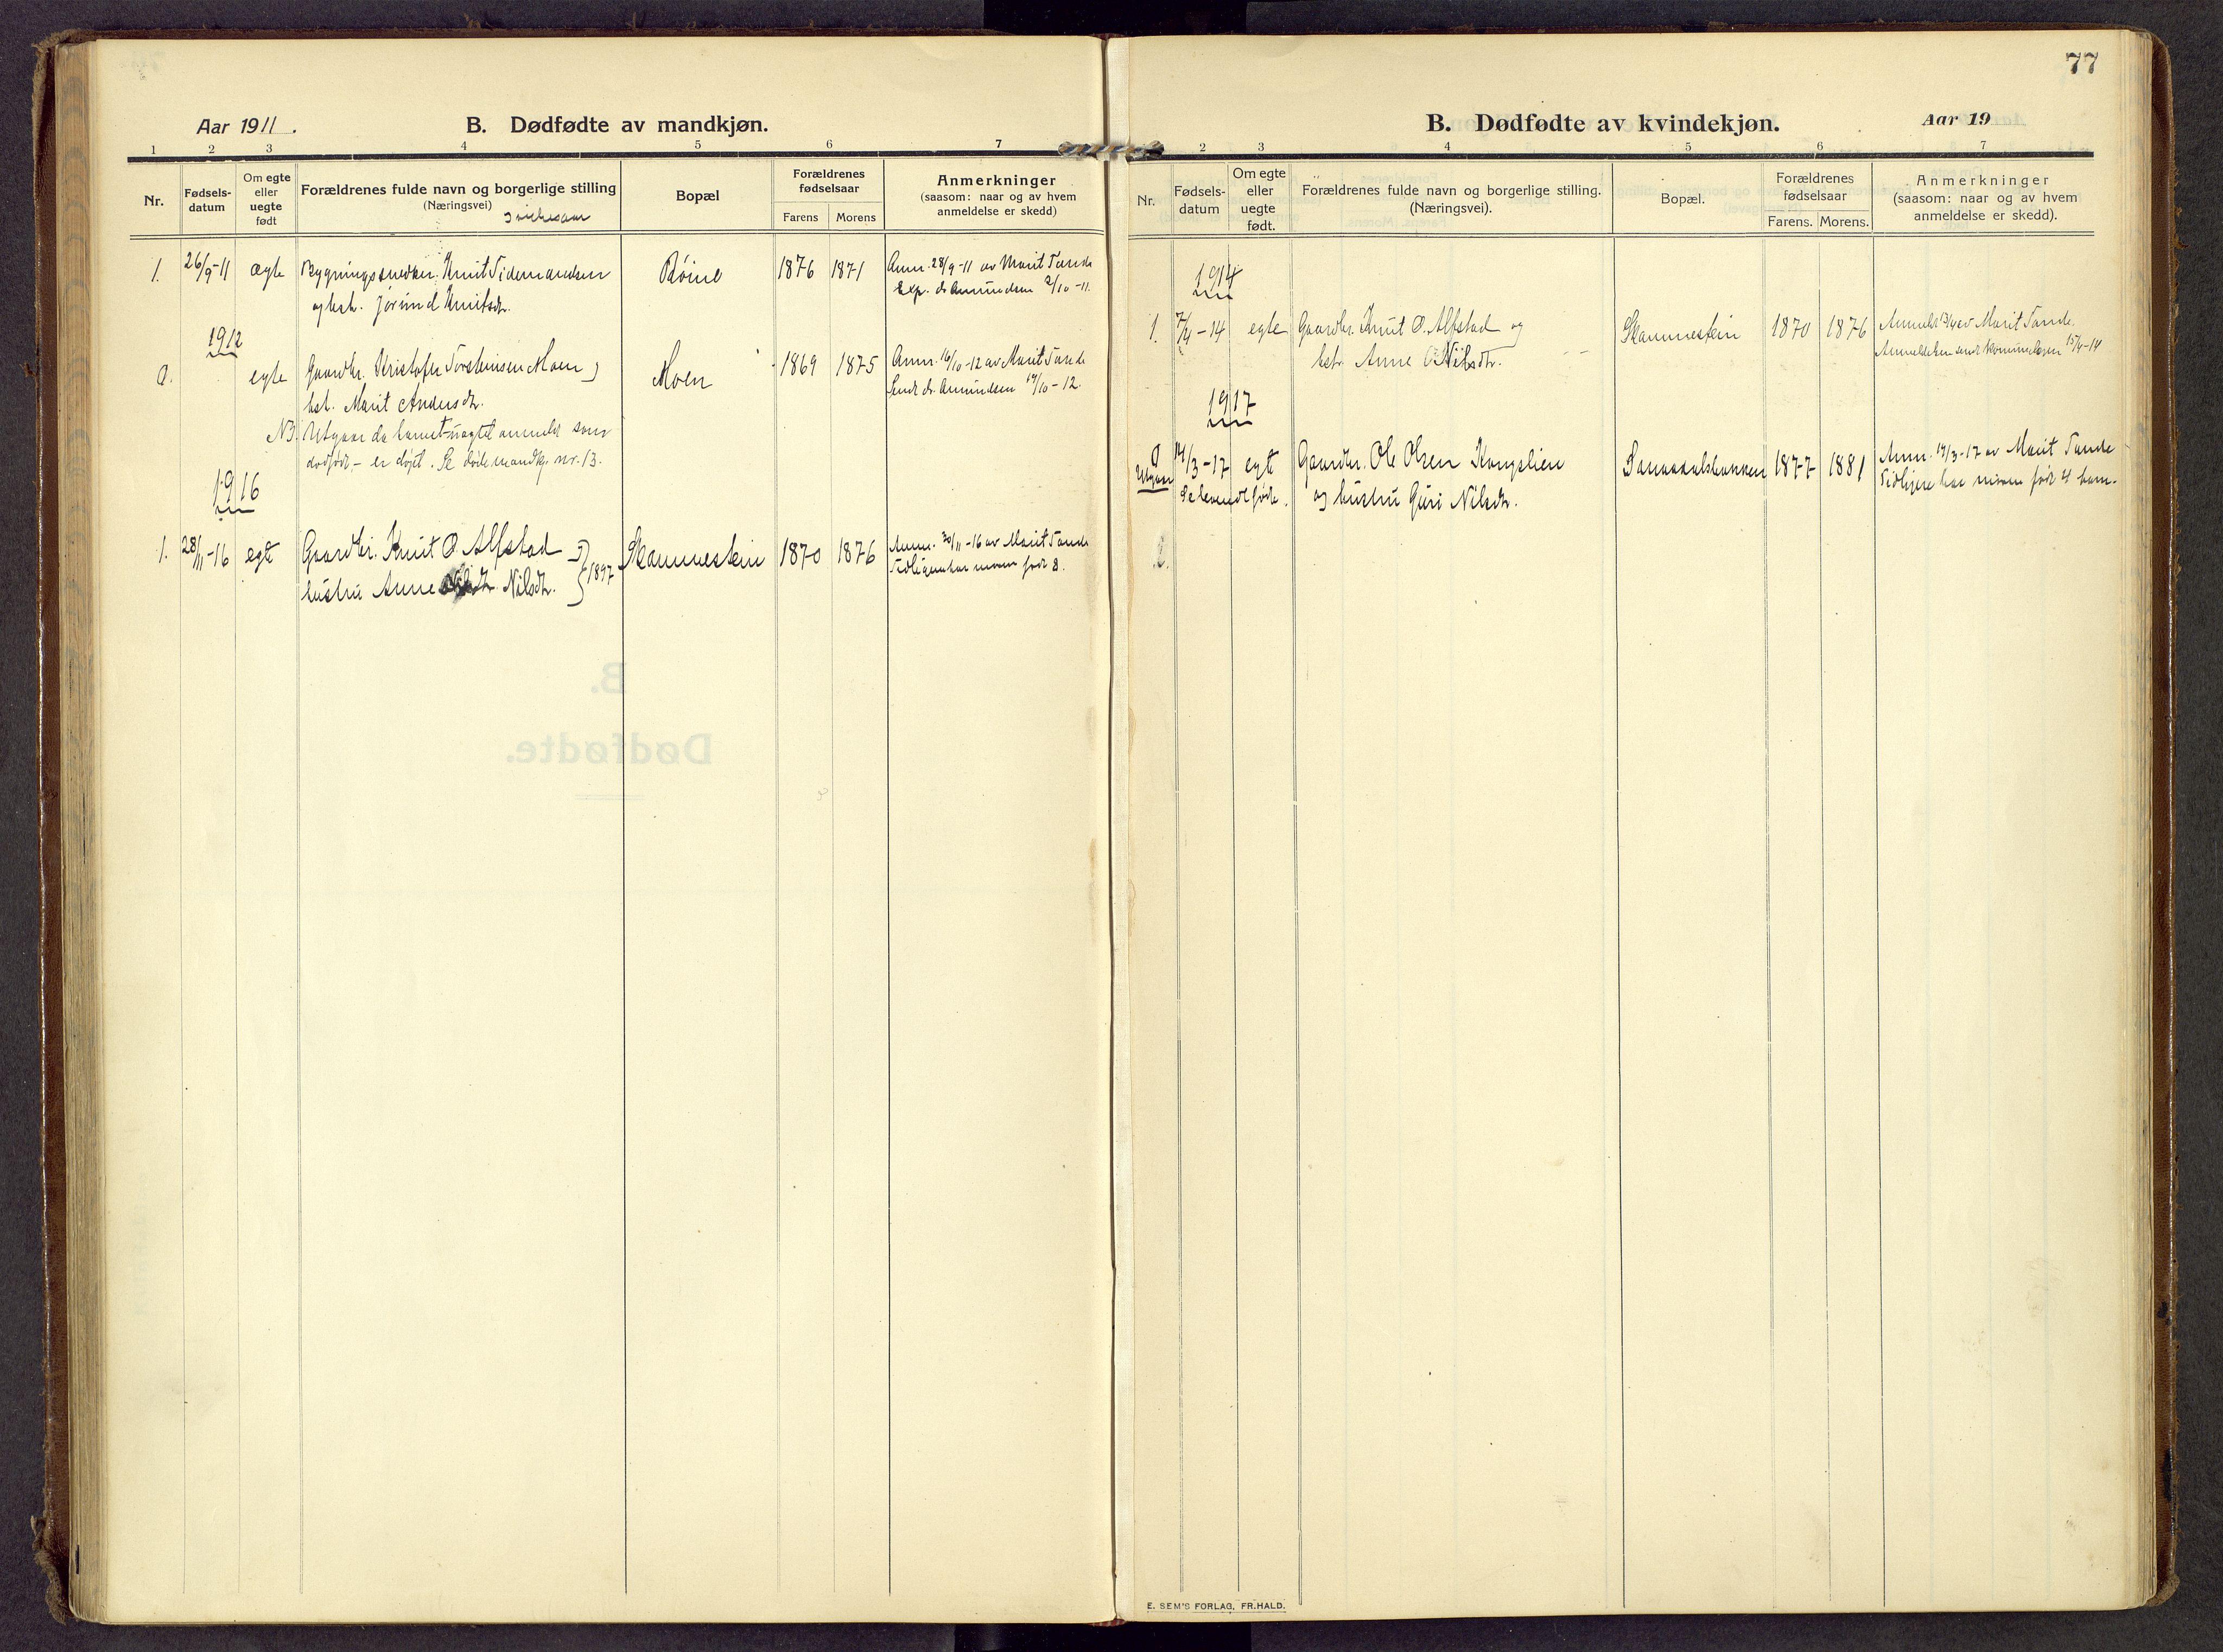 Aar 1911.
B. Dødfødte av mandkjøn.
1 2 3 4 5 6 7
Nr.
Fødsels-
datum
Om egte
eller
uegte
født
Forældrenes fulde navn og borgerlige stilling
(Næringsvei)
Bopæl
Forældrenes
fødselsaar
Farens Morens
Anmerkninger
(saasom: naar og av hvem
anmeldelse er skedd)
1. 26/9-11 ægte Bygningssnedker. Knut Tidemandsen Røine 1876 1871 Anm. 28/9-11 av Marit Tande
og hst. Jørund Knutsdtr. Exp. dr Amundsen 2/10-11.
1912
0. egte Gaardbr. Kristofer Torsteinsen Moen Moen 1869 1875 Anm. 16/10-12 av Marit Tande
hst. Marit Andersdtr. Sendt dr. Amundsen 17/10-12.
NB. Utgaar da barnet anmeldt som
dødfødt - er døpt. Se døde mandkj. nr. 13.
1916
1. 28/11-16 egte Gaardbr. Knut O. Alfstad Skammestein 1870 1876 Anm. 30/11-16 av Marit Tande
hustru Anne Nilsdtr. } 1897 Tidligere har moren født 8.
77
B. Dødfødte av kvindekjøn.
Aar 19
2 3 4 5 6 7
Nr.
Fødsels-
datum
Om egte
eller
uegte
født.
Forældrenes fulde navn og borgerlige stilling.
(Næringsvei).
Bopæl.
Forældrenes
fødselsaar
Farens. Morens.
Anmerkninger
(saasom: naar og av hvem
anmeldelse er skedd).
1914
1. 7/4-14 egte Gaardbr. Knut O. Alfstad og Skammestein 1870 1876 Anmeldt av Marit Tande.
hstr. Anne Nilsdtr. Anmeldelsen sendt 15/4-14
1917
0 14/3-17 egte Gaardbr. Ole Olsen Kongslien 1877 1881 Anm. 19/3-17 av Marit Tande
Utgaar Se levende fødte. og hustru Guri Nilsdtr. Tidligere har moren født 4 barn.
E. SEM'S FORLAG, FR.HALD.